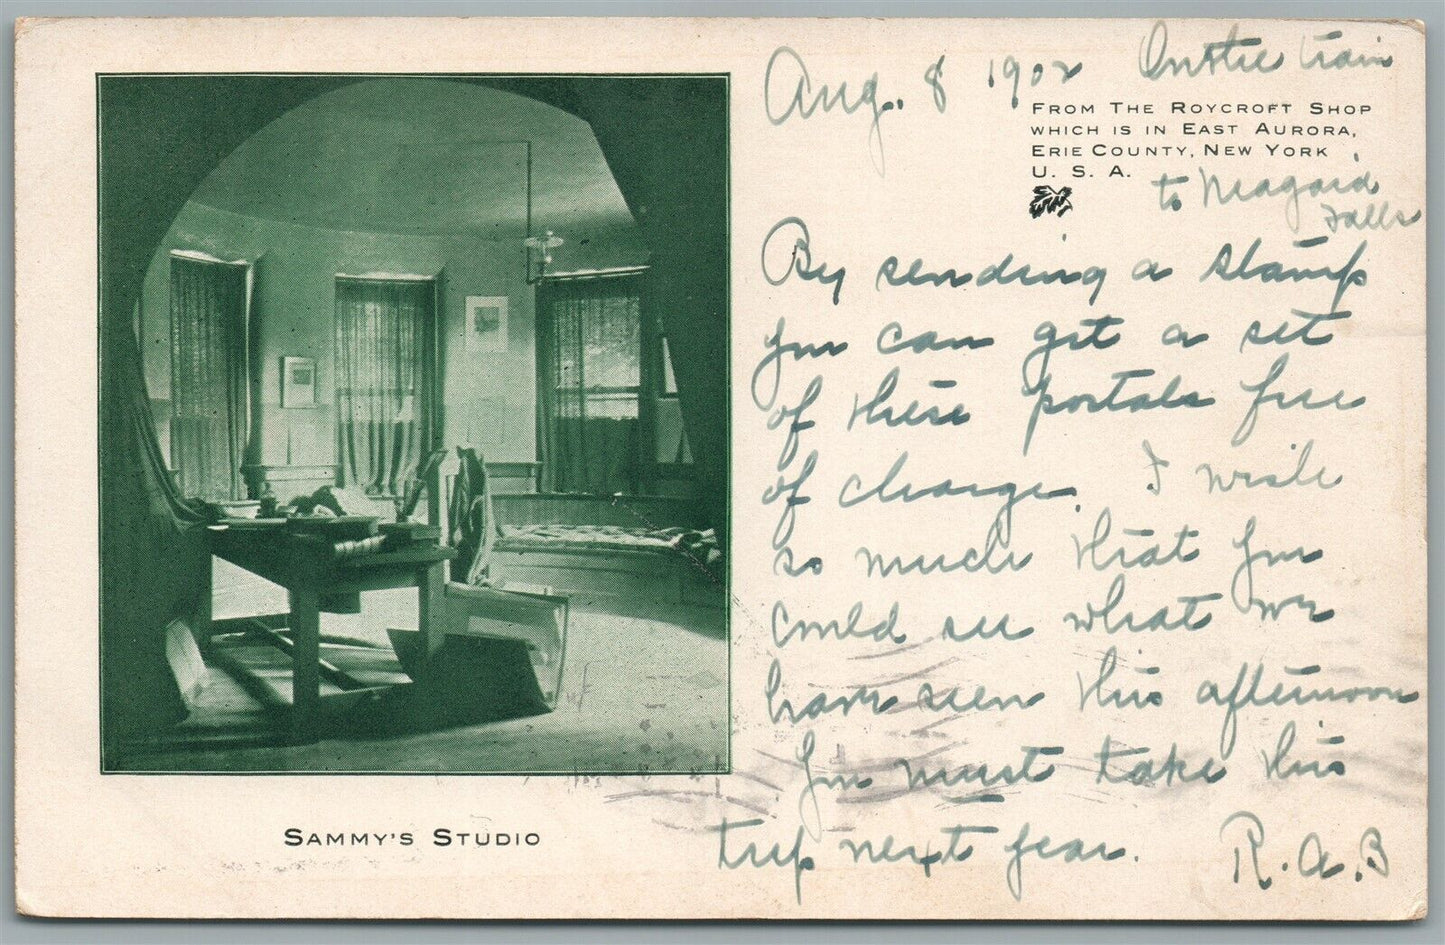 Aug. 8 1902 On the train
FROM THE ROYCROFT SHOP
WHICH IS IN EAST AURORA,
ERIE COUNTY, NEW YORK
U. S. A.
to Niagara
Falls
By sending a stamp
you can get a set
of these postals free
of charge. I wish
so much that you
could see what we
have seen this afternoon
You must take this
trip next year.
R.A.B
SAMMY'S STUDIO